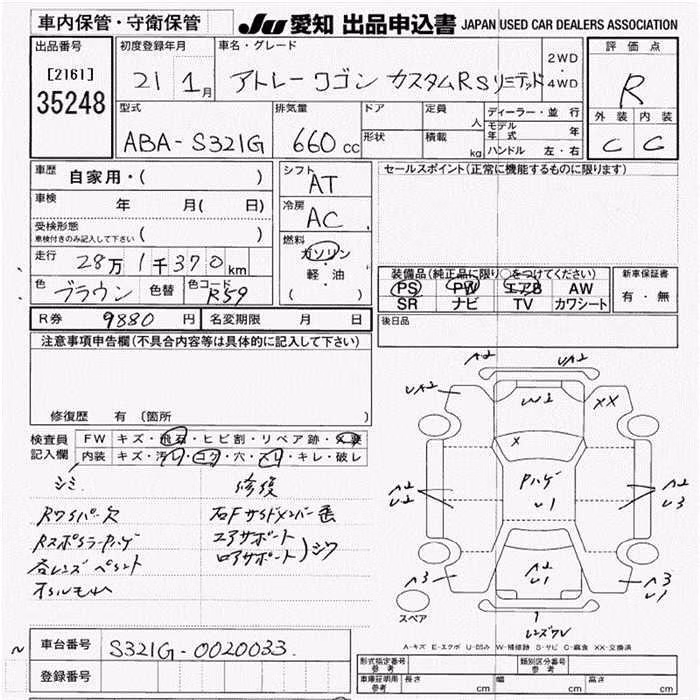 車内保管・守衛保管
JU 愛知 出品申込書 JAPAN USED CAR DEALERS ASSOCIATION
出品番号
[2161]
35248
初度登録年月
21 1月
車名・グレード
アトレーワゴン カスタムRSリミテッド
2WD
・
4WD
評価点
R
外装 内装
C C
型式
ABA-S321G
排気量
660cc
ドア
形状
定員
人
積載
kg
ディーラー・並行
モデル年式 年
ハンドル 左・右
車歴
自家用・( )
車検
年 月( 日)
受検形態
車検付きのみ記入して下さい ( )
走行
28万1千370km
色
ブラウン
色替
色コード
R59
シフト
AT
冷房
AC
燃料
ガソリン
・
軽・油
( )
セールスポイント(正常に機能するものに限ります)
装備品(純正品に限り○をつけてください)
PS PW エアB AW
SR ナビ TV カワシート
新車保証書
有・無
後日品
R券 9880円
名変期限 月 日
注意事項申告欄(不具合内容等は具体的に記入して下さい)
修復歴 有 (箇所
検査員記入欄
FW キズ・飛石・ヒビ割・リペア跡・交要
内装 キズ・汚レ・コゲ・穴・スレ・キレ・破レ
シミ
Rワイパー欠
Rスポイラーハゲ
各レンズ
修復
右Fサイドメンバー歪
エアサポート
ロアサポート
)シワ
A2
UA2
UA2
W2
XX
X
Pハゲ
U1
A2
U2
A2
U3
A2
U1
A3
A3
U1
スペア
A-キズ E-エクボ U-凹み W-補修跡 S-サビ C-腐食 XX-交換済
車台番号
S321G-0020033
登録番号
形式指定番号
参考
類別区分番号
参考
車庫証明用
参考
長さ cm
幅 cm
高さ cm